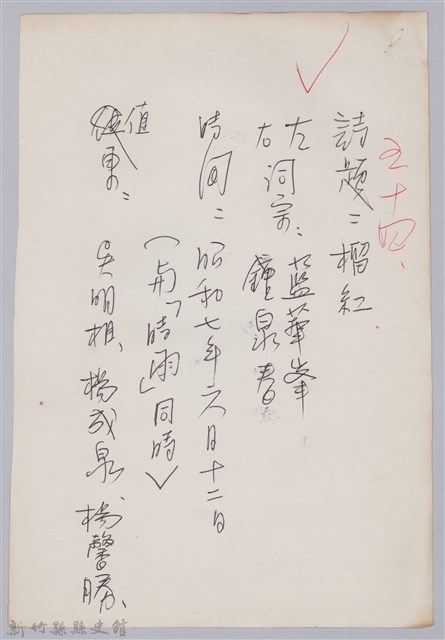 五十四、
詩題：榴紅
左詞宗：藍華峯
右　　　鐘泉春
時間：昭和七年六月十二日
（与「時雨」同時）
值東：吳明相、楊成泉、楊馨勝、
新竹縣縣史館